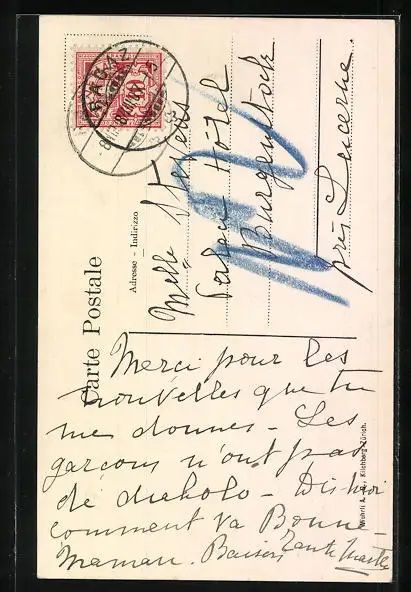 Carte Postale
Adresse - Indirizzo
RAGAZ
10
Melle
Palace Hôtel
Burgenstock
près Lucerne
Merci pour les
nouvelles que tu
me donnes - Les
garçons n'ont pas
de diabolo - Dis moi
comment va Bonne
Maman. Baisers Tante Marthe
Wehrli A.-G., Kilchberg-Zürich.